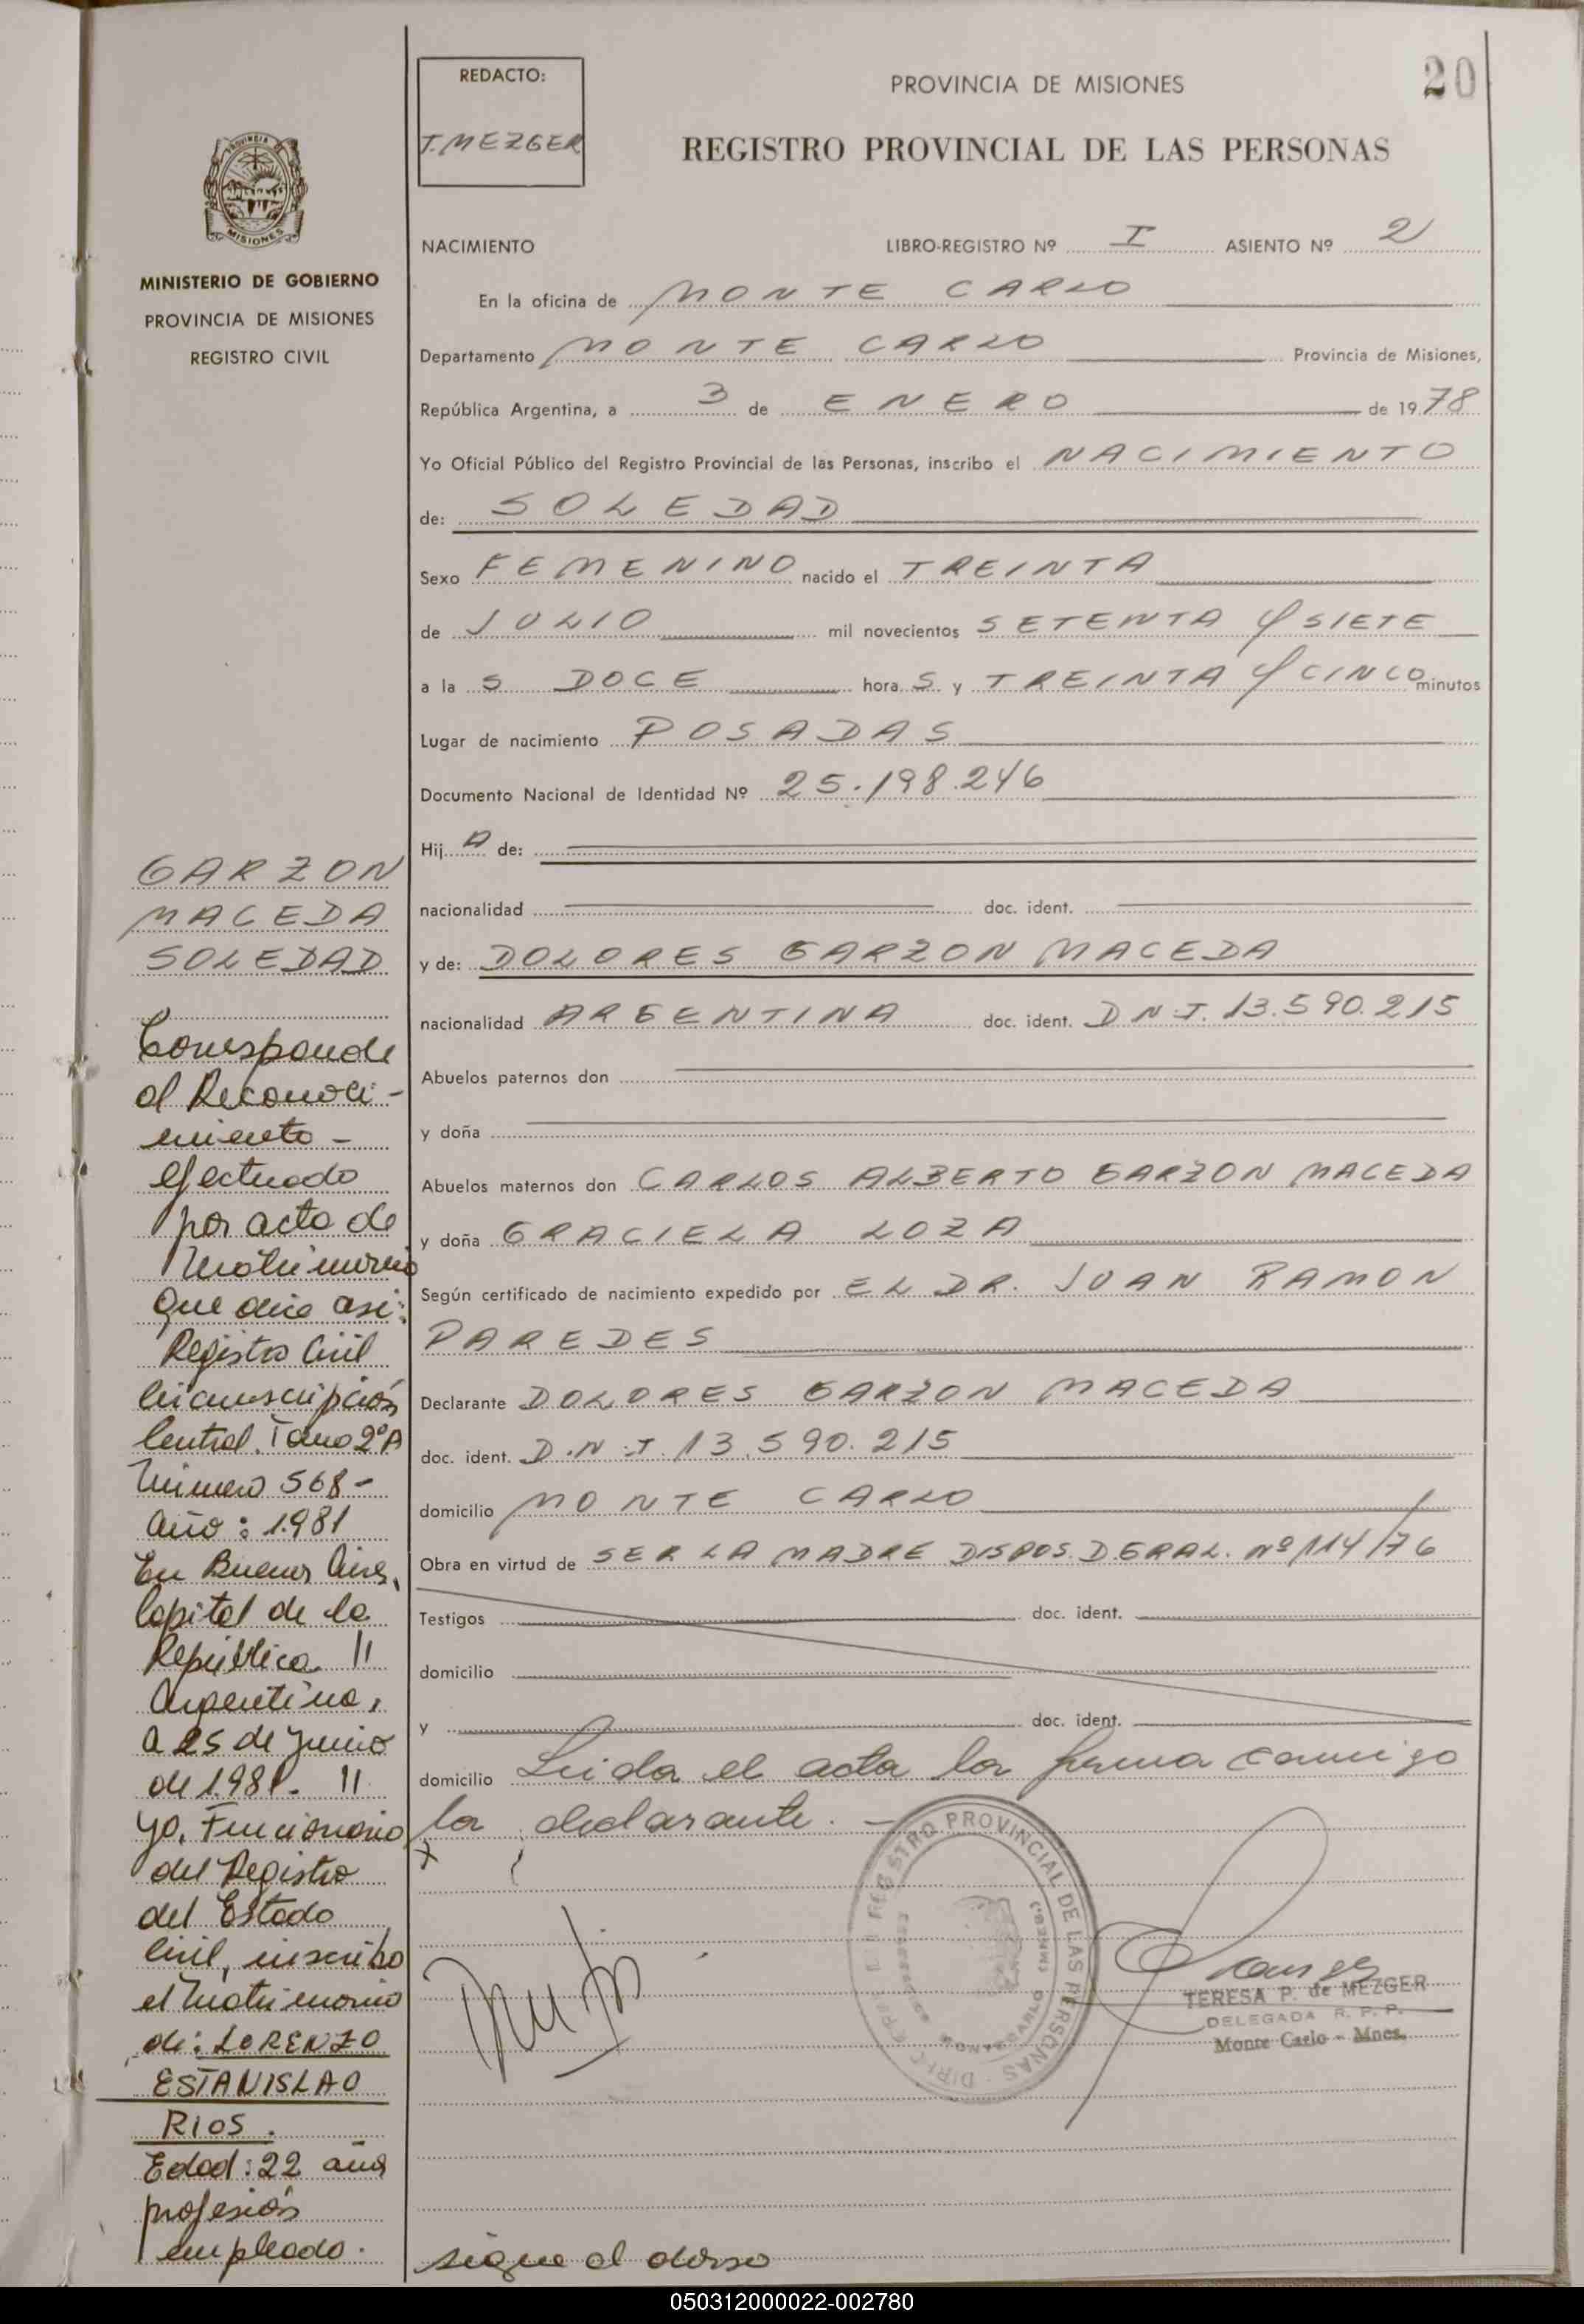 20
REDACTO:
T. MEZGER
PROVINCIA DE MISIONES
REGISTRO PROVINCIAL DE LAS PERSONAS
PROVINCIA DE
MISIONES
MINISTERIO DE GOBIERNO
PROVINCIA DE MISIONES
REGISTRO CIVIL
NACIMIENTO LIBRO-REGISTRO Nº I ASIENTO Nº 2
En la oficina de MONTE CARLO
Departamento MONTE CARLO Provincia de Misiones,
República Argentina, a 3 de ENERO de 1978
Yo Oficial Público del Registro Provincial de las Personas, inscribo el NACIMIENTO
de: SOLEDAD
Sexo FEMENINO nacido el TREINTA
de JULIO mil novecientos SETENTA Y SIETE
a la S DOCE hora S y TREINTA Y CINCO minutos
Lugar de nacimiento POSADAS
Documento Nacional de Identidad Nº 25.198.246
Hij A de:
nacionalidad doc. ident.
y de: DOLORES GARZON MACEDA
nacionalidad ARGENTINA doc. ident. D N I. 13.590.215
Abuelos paternos don
y doña
Abuelos maternos don CARLOS ALBERTO GARZON MACEDA
y doña GRACIELA LOZA
Según certificado de nacimiento expedido por EL DR. JUAN RAMON
PAREDES
Declarante DOLORES GARZON MACEDA
doc. ident. D.N.I. 13.590.215
domicilio MONTE CARLO
Obra en virtud de SER LA MADRE DISPOS. D GRAL. Nº 114/76
Testigos doc. ident.
domicilio
y doc. ident.
domicilio Leida el acta la firma conmigo
la declarante. -
X
REGISTRO PROVINCIAL DE LAS PERSONAS
MONTECARLO
TERESA P. de MEZGER
DELEGADA R. P. P.
Monte Carlo - Mnes.
sigue al dorso
GARZON
MACEDA
SOLEDAD
Corresponde
al Reconoci-
miento -
efectuado
por acta de
Matrimonio
que dice asi:
Registro Civil
Circunscripción
Central. Tomo 2º A
Número 568 -
Año: 1.981
En Buenos Aires,
Capital de la
República //
Argentina,
a 25 de Junio
de 1.981. //
yo, Funcionario
del Registro
del Estado
Civil, inscribo
el Matrimonio
de: LORENZO
ESTANISLAO
RIOS.
Edad: 22 años
profesión
empleado.
050312000022-002780